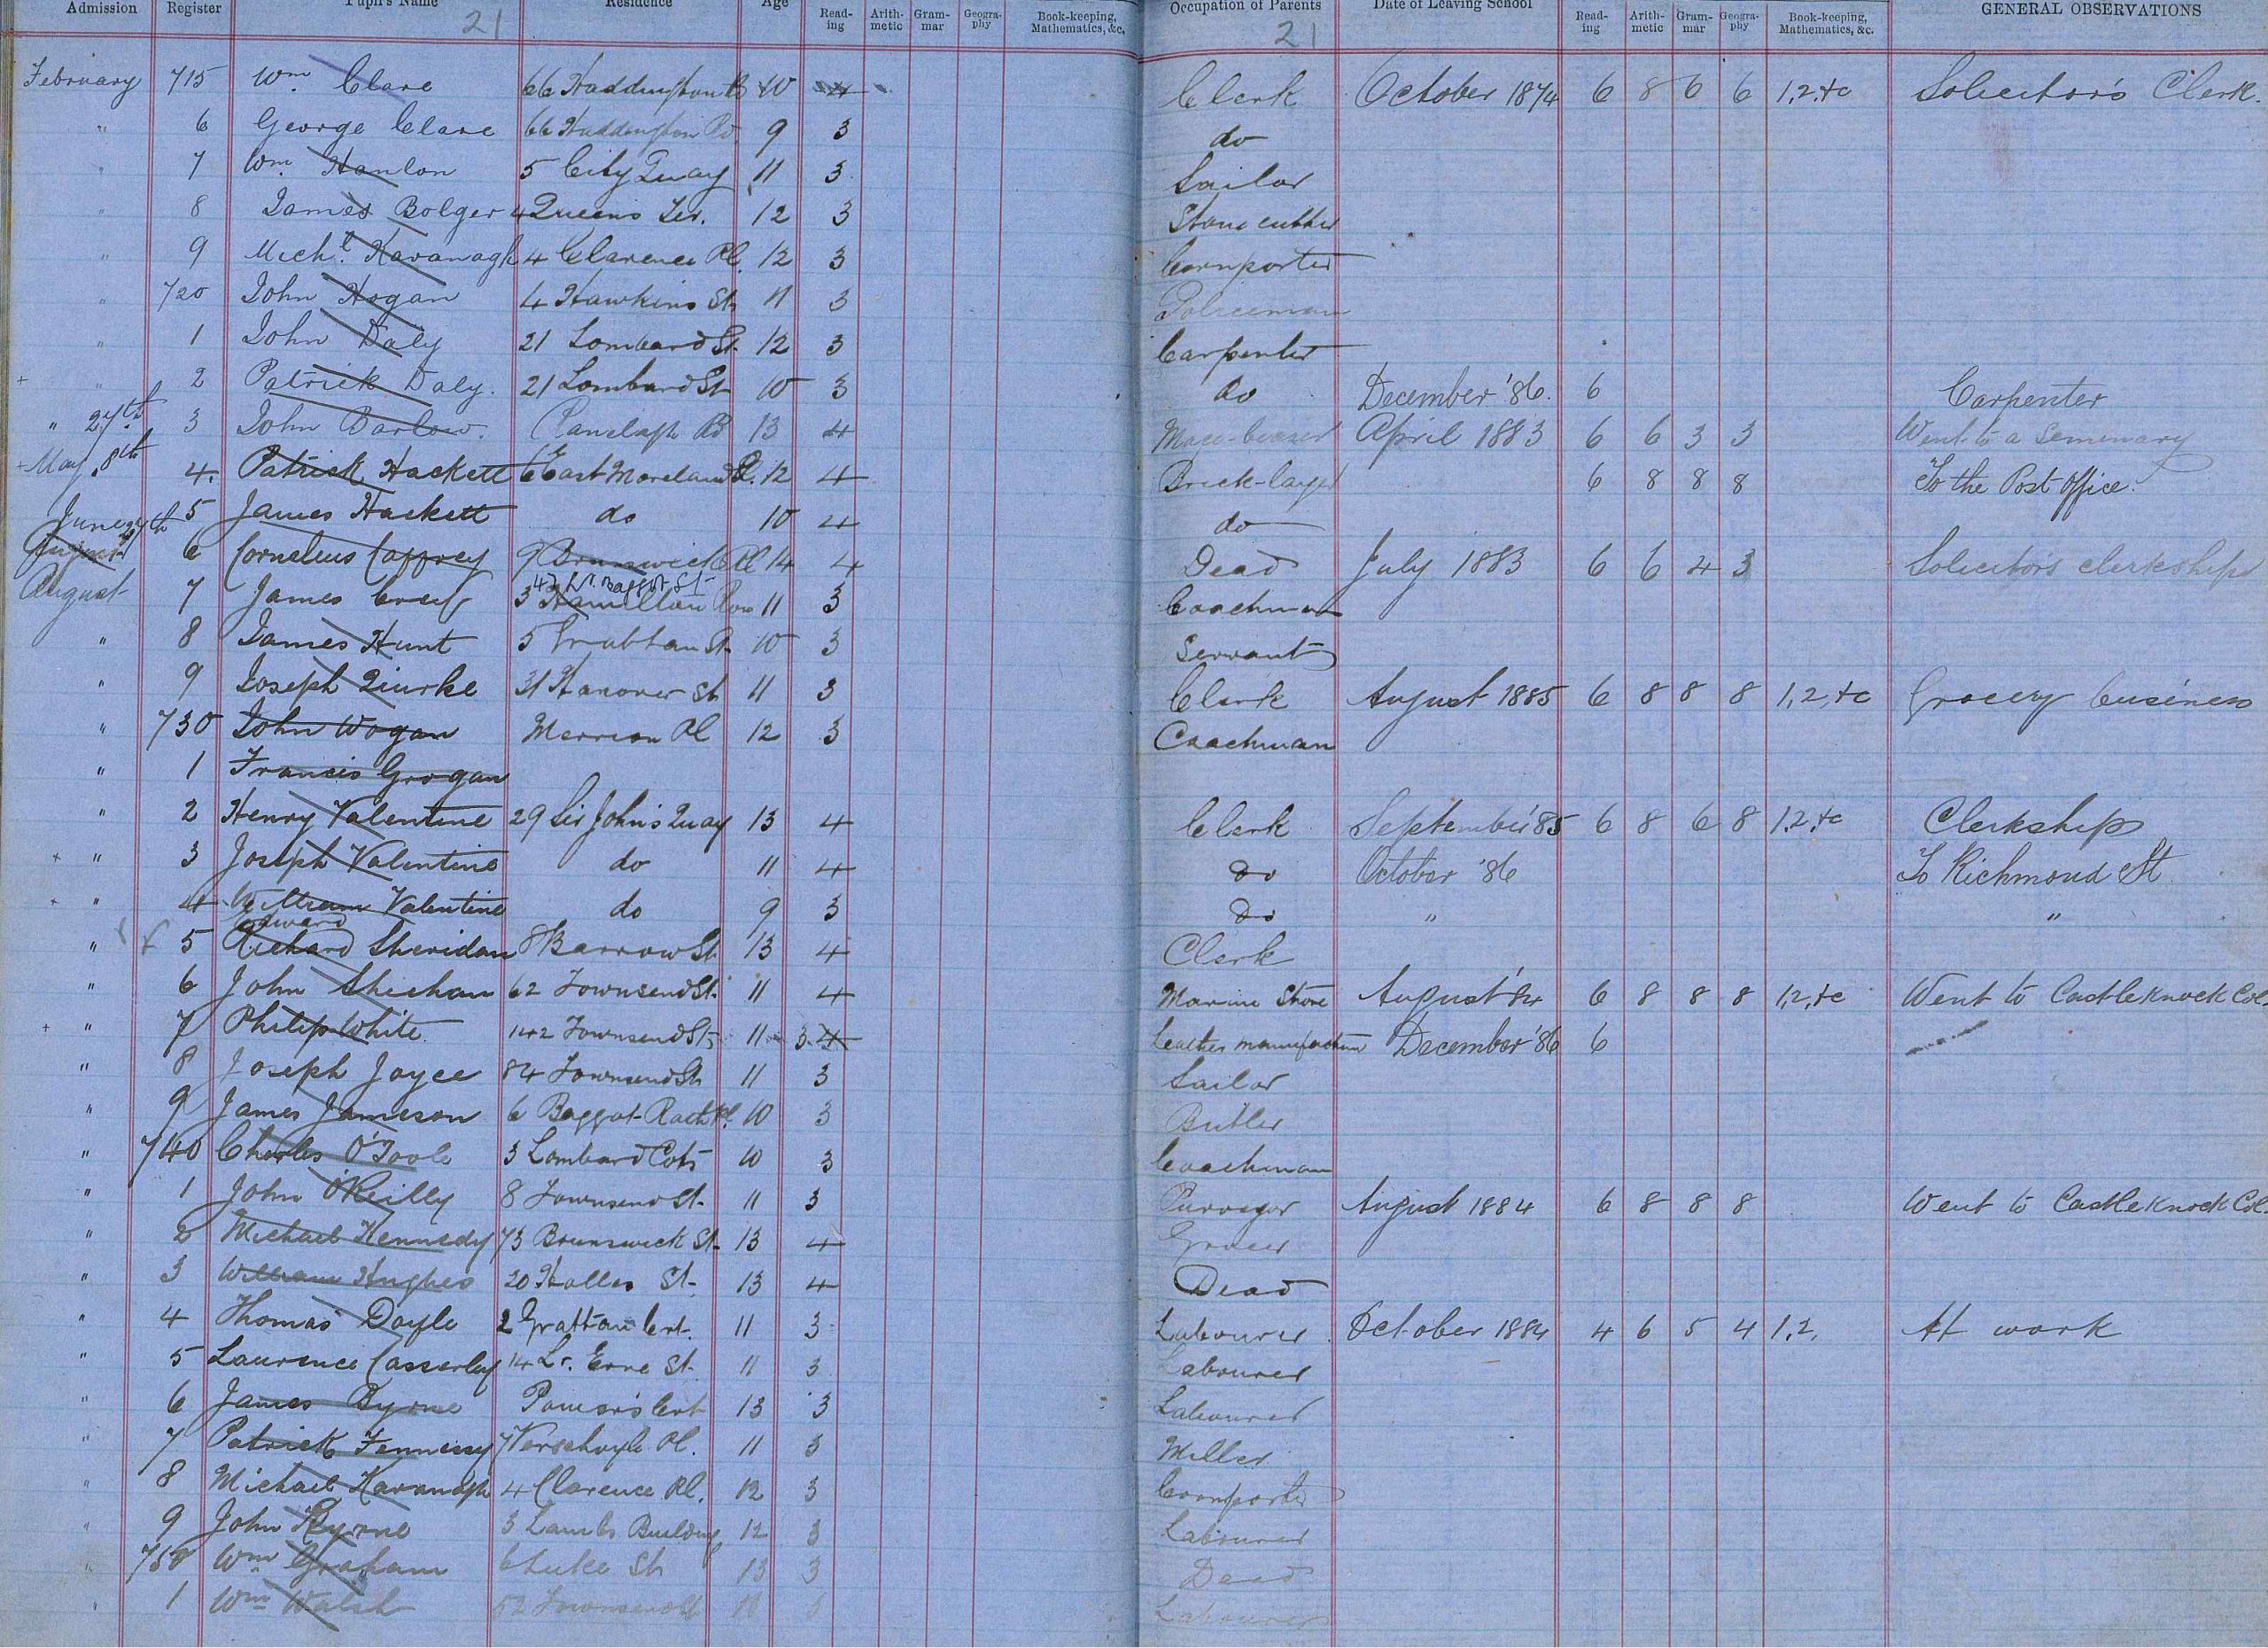 Admission Register Pupil's Name Residence Age Read-ing Arith-metic Gram-mar Geogra-phy Book-keeping, Mathematics, &c. Occupation of Parents Date of Leaving School Read-ing Arith-metic Gram-mar Geogra-phy Book-keeping, Mathematics, &c. GENERAL OBSERVATIONS
21 21
February 715 Wm. Clare 66 Haddington Rd 10 4 Clerk October 1874 6 8 6 6 1,2,+c Solicitor's Clerk
" 6 George Clare 66 Haddington Rd 9 3 do
" 7 Wm. Hanlon 5 City Quay 11 3 Sailor
" 8 James Bolger 4 Queen's Ter. 12 3 Stone cutter
" 9 Michl. Kavanagh 4 Clarence Pl. 12 3 Cornporter
" 720 John Hogan 4 Hawkins St 11 3 Policeman
" 1 John Daly 21 Lombard St. 12 3 Carpenter
+ " 2 Patrick Daly. 21 Lombard St 10 3 do December '86. 6 Carpenter
" 27th 3 John Barlow. Ranelagh Rd 13 4 Mace-bearer April 1883 6 6 3 3 Went to a Seminary
May 8th 4. Patrick Hackett 6 East Moreland Pl. 12 4 Brick-layer 6 8 8 8 To the Post Office.
June 5 James Hackett do 10 4 do
August 6 Cornelius Caffrey 9 Brunswick Pl 14 4 Dead July 1883 6 6 4 3 Solicitor's clerkship
47 Lr. Baggot St
August 7 James 3 Hamilton Row 11 3 Coachman
" 8 James Hunt 5 St. 10 3 Servant
" 9 Joseph Quirke 31 Hanover St 11 3 Clerk August 1885 6 8 8 8 1,2,+c Grocery business
" 730 John Wogan Merrion Pl 12 3 Coachman
" 1 Francis Grogan
" 2 Henry Valentine 29 Sir John's Quay 13 4 Clerk September '85 6 8 6 8 1,2,+c Clerkship
+ " 3 Joseph Valentine do 11 4 do October '86 To Richmond St
+ " 4 William Valentine do 9 3 do " "
Edward
" 5 Richard Sheridan 8 Barrow St 13 4 Clerk
" 6 John Sheehan 62 Townsend St. 11 4 Marine Store August '84 6 8 8 8 1,2,+c Went to Castleknock Col.
+ " 7 Philip White 142 Townsend St. 11 3 4 Leather manufacturer December '86 6
" 8 Joseph Joyce 84 Townsend St 11 3 Sailor
" 9 James Jameson 6 Baggot-Rath Pl. 10 3 Butler
" 740 Charles O'Toole 3 Lombard Cots 10 3 Coachman
" 1 John O'Reilly 8 Townsend St. 11 3 Purveyor August 1884 6 8 8 8 Went to Castleknock Col.
" 2 Michael Kennedy 73 Brunswick St. 13 4 Grocer
" 3 William Hughes 20 Holles St. 13 4 Dead
" 4 Thomas Doyle 2 Grattan Crt. 11 3 Labourer October 1884 4 6 5 4 1,2, At work
" 5 Laurence Casserley 14 Lr. Erne St. 11 3 Labourer
" 6 James Byrne Power's Crt 13 3 Labourer
" 7 Patrick Fennessy 7 Verschoyle Pl. 11 3 Miller
" 8 Michael Kavanagh 4 Clarence Pl. 12 3 Cornporter
" 9 John Byrne 3 Lambs Building 12 3 Labourer
" 750 Wm Graham 6 Luke St 13 3 Dead
" 1 Wm Walsh 52 Townsend St Labourer